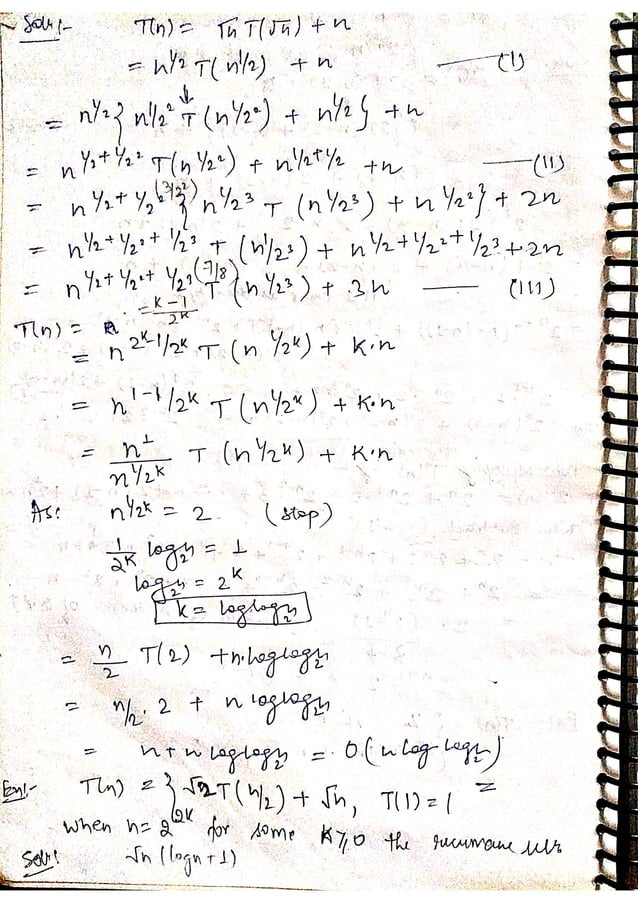 Soln:- T(n) = √n T(√n) + n
= n^1/2 T(n^1/2) + n —— (I)
= n^1/2 { n^1/2^2 T(n^1/2^2) + n^1/2 } + n
= n^1/2+1/2^2 T(n^1/2^2) + n^1/2+1/2 + n —— (II)
= n^1/2+1/2^2 (3/2^2) { n^1/2^3 T(n^1/2^3) + n^1/2^2 } + 2n
= n^1/2+1/2^2+1/2^3 T(n^1/2^3) + n^1/2+1/2^2+1/2^3 + 2n
= n^1/2+1/2^2+1/2^3 (7/8) T(n^1/2^3) + 3n —— (III)
T(n) = = k-1/2^k
= n^2^k-1/2^k T(n^1/2^k) + K.n
= n^1-1/2^k T(n^1/2^k) + K.n
= n^1/n^1/2^k T(n^1/2^k) + K.n
As: n^1/2^k = 2 (stop)
1/2^k log₂n = 1
log₂n = 2^k
k = loglog₂n
= n/2 T(2) + n.loglog₂n
= n/2 . 2 + n loglog₂n
= n + n loglog₂n = O(n log log₂n)
En:- T(n) = { √2T(n/2) + √n, T(1) = 1
when n = 2^2k for some K ≥ 0 the
Soln: √n (logn + 1)